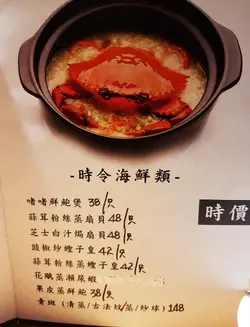 -時令海鮮類-
時價
啫啫鮮鮑煲 38/只
蒜茸粉絲蒸扇貝 48/只
芝士白汁焗扇貝 48/只
豉椒炒蟶子皇 42/只
蒜茸粉絲蒸蟶子皇 42/只
花雕蒸瀨尿蝦
果皮蒸鮮鮑 38/只
青斑 (清蒸/古法炆/蒸/炒球) 148